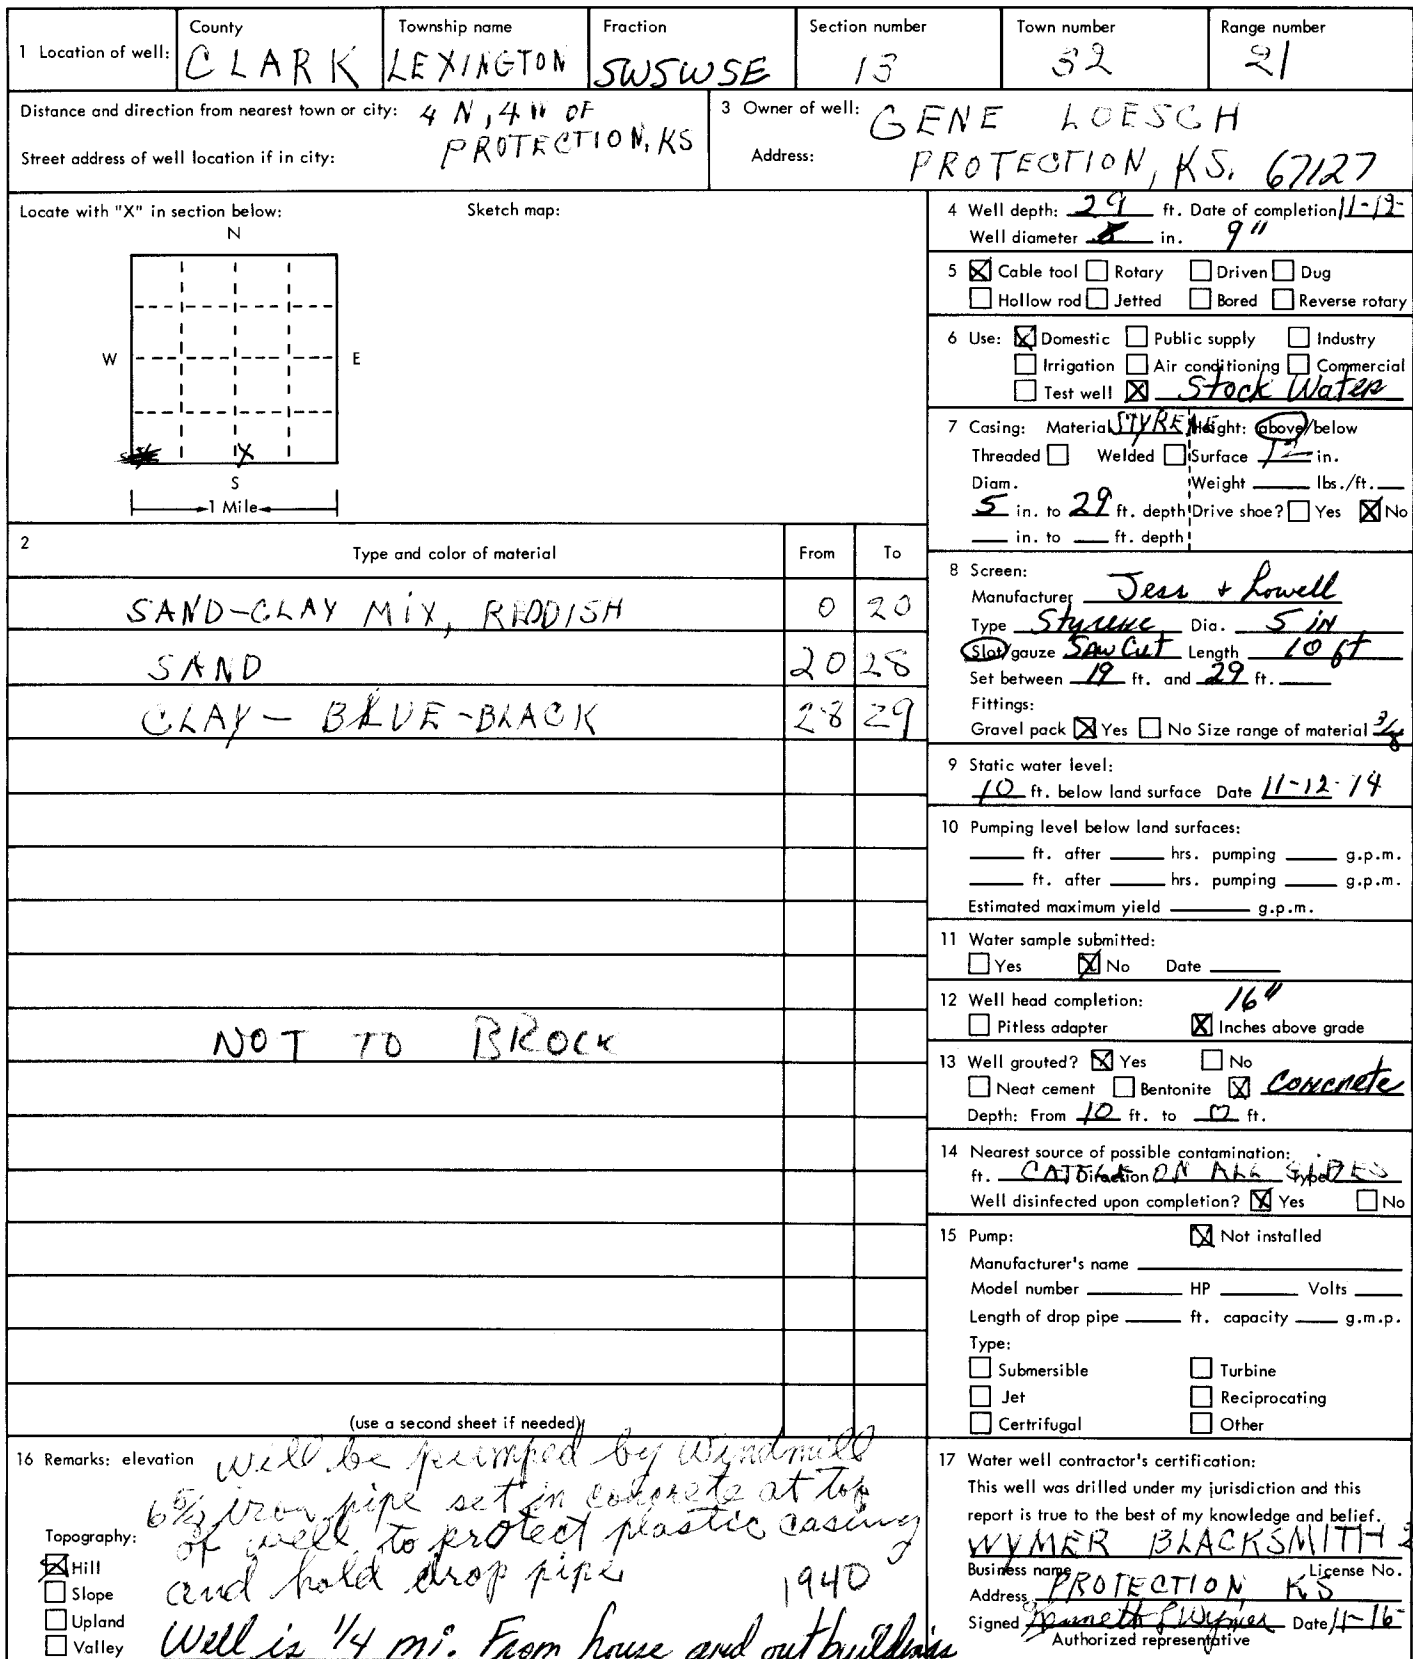 1 Location of well:
County
CLARK
Township name
LEXINGTON
Fraction
SWSWSE
Section number
13
Town number
32
Range number
21
Distance and direction from nearest town or city: 4 N, 4 W OF
PROTECTION, KS
Street address of well location if in city:
3 Owner of well: GENE LOESCH
Address: PROTECTION, KS. 67127
Locate with "X" in section below: Sketch map:
N
W E
X
S
1 Mile
2 Type and color of material From To
SAND-CLAY MIX, REDDISH 0 20
SAND 20 28
CLAY - BLUE-BLACK 28 29
NOT TO BROCK
(use a second sheet if needed)
4 Well depth: 29 ft. Date of completion 11-12-
Well diameter in. 9"
5 ☒ Cable tool ☐ Rotary ☐ Driven ☐ Dug
☐ Hollow rod ☐ Jetted ☐ Bored ☐ Reverse rotary
6 Use: ☒ Domestic ☐ Public supply ☐ Industry
☐ Irrigation ☐ Air conditioning ☐ Commercial
☐ Test well ☒ Stock Water
7 Casing: Material STYRENE Height: above/below
Threaded ☐ Welded ☐ Surface 12 in.
Diam. Weight ____ lbs./ft. __
5 in. to 29 ft. depth Drive shoe? ☐ Yes ☒ No
___ in. to ___ ft. depth
8 Screen:
Manufacturer Jess + Lowell
Type Styrene Dia. 5 IN
Slot/gauze Saw Cut Length 10 ft
Set between 19 ft. and 29 ft. ____
Fittings:
Gravel pack ☒ Yes ☐ No Size range of material 3/8
9 Static water level:
10 ft. below land surface Date 11-12-74
10 Pumping level below land surfaces:
____ ft. after ____ hrs. pumping ____ g.p.m.
____ ft. after ____ hrs. pumping ____ g.p.m.
Estimated maximum yield ______ g.p.m.
11 Water sample submitted:
☐ Yes ☒ No Date _____
12 Well head completion: 16"
☐ Pitless adapter ☒ Inches above grade
13 Well grouted? ☒ Yes ☐ No
☐ Neat cement ☐ Bentonite ☒ Concrete
Depth: From 10 ft. to 0 ft.
14 Nearest source of possible contamination:
ft. CATTLE Direction ON ALL SIDES Type
Well disinfected upon completion? ☒ Yes ☐ No
15 Pump: ☒ Not installed
Manufacturer's name ______
Model number ______ HP _____ Volts ____
Length of drop pipe _____ ft. capacity ____ g.m.p.
Type:
☐ Submersible ☐ Turbine
☐ Jet ☐ Reciprocating
☐ Certrifugal ☐ Other
16 Remarks: elevation will be pumped by Windmill
6 5/8 iron pipe set in concrete at top
of well, to protect plastic casing
and hold drop pipe
1940
Well is 1/4 mi. From house and outbuildings
Topography:
☒ Hill
☐ Slope
☐ Upland
☐ Valley
17 Water well contractor's certification:
This well was drilled under my jurisdiction and this
report is true to the best of my knowledge and belief.
WYMER BLACKSMITH
Business name License No.
Address PROTECTION KS
Signed Kenneth L Wymer Date 11-16-
Authorized representative